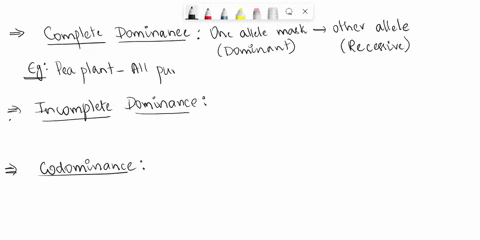 ⇒ Complete Dominance : One allele mask → other allele
(Dominant) (Recessive)
Eg: Pea plant - All pur
⇒ Incomplete Dominance :
⇒ Codominance :